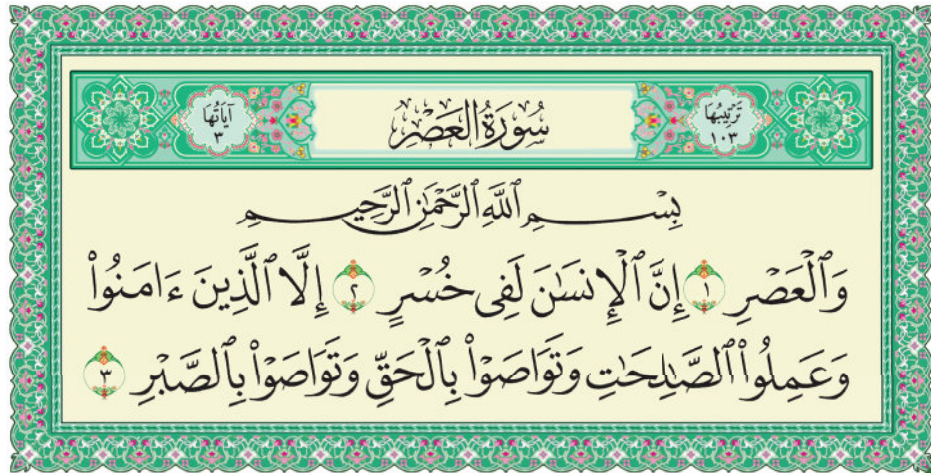 تَرْتِيبُهَا
١٠٣
سُورَةُ الْعَصْرِ
آيَاتُهَا
٣
بِسْمِ ٱللَّهِ ٱلرَّحْمَٰنِ ٱلرَّحِيمِ
وَٱلْعَصْرِ ١ إِنَّ ٱلْإِنسَٰنَ لَفِى خُسْرٍ ٢ إِلَّا ٱلَّذِينَ ءَامَنُوا۟
وَعَمِلُوا۟ ٱلصَّٰلِحَٰتِ وَتَوَاصَوْا۟ بِٱلْحَقِّ وَتَوَاصَوْا۟ بِٱلصَّبْرِ ٣